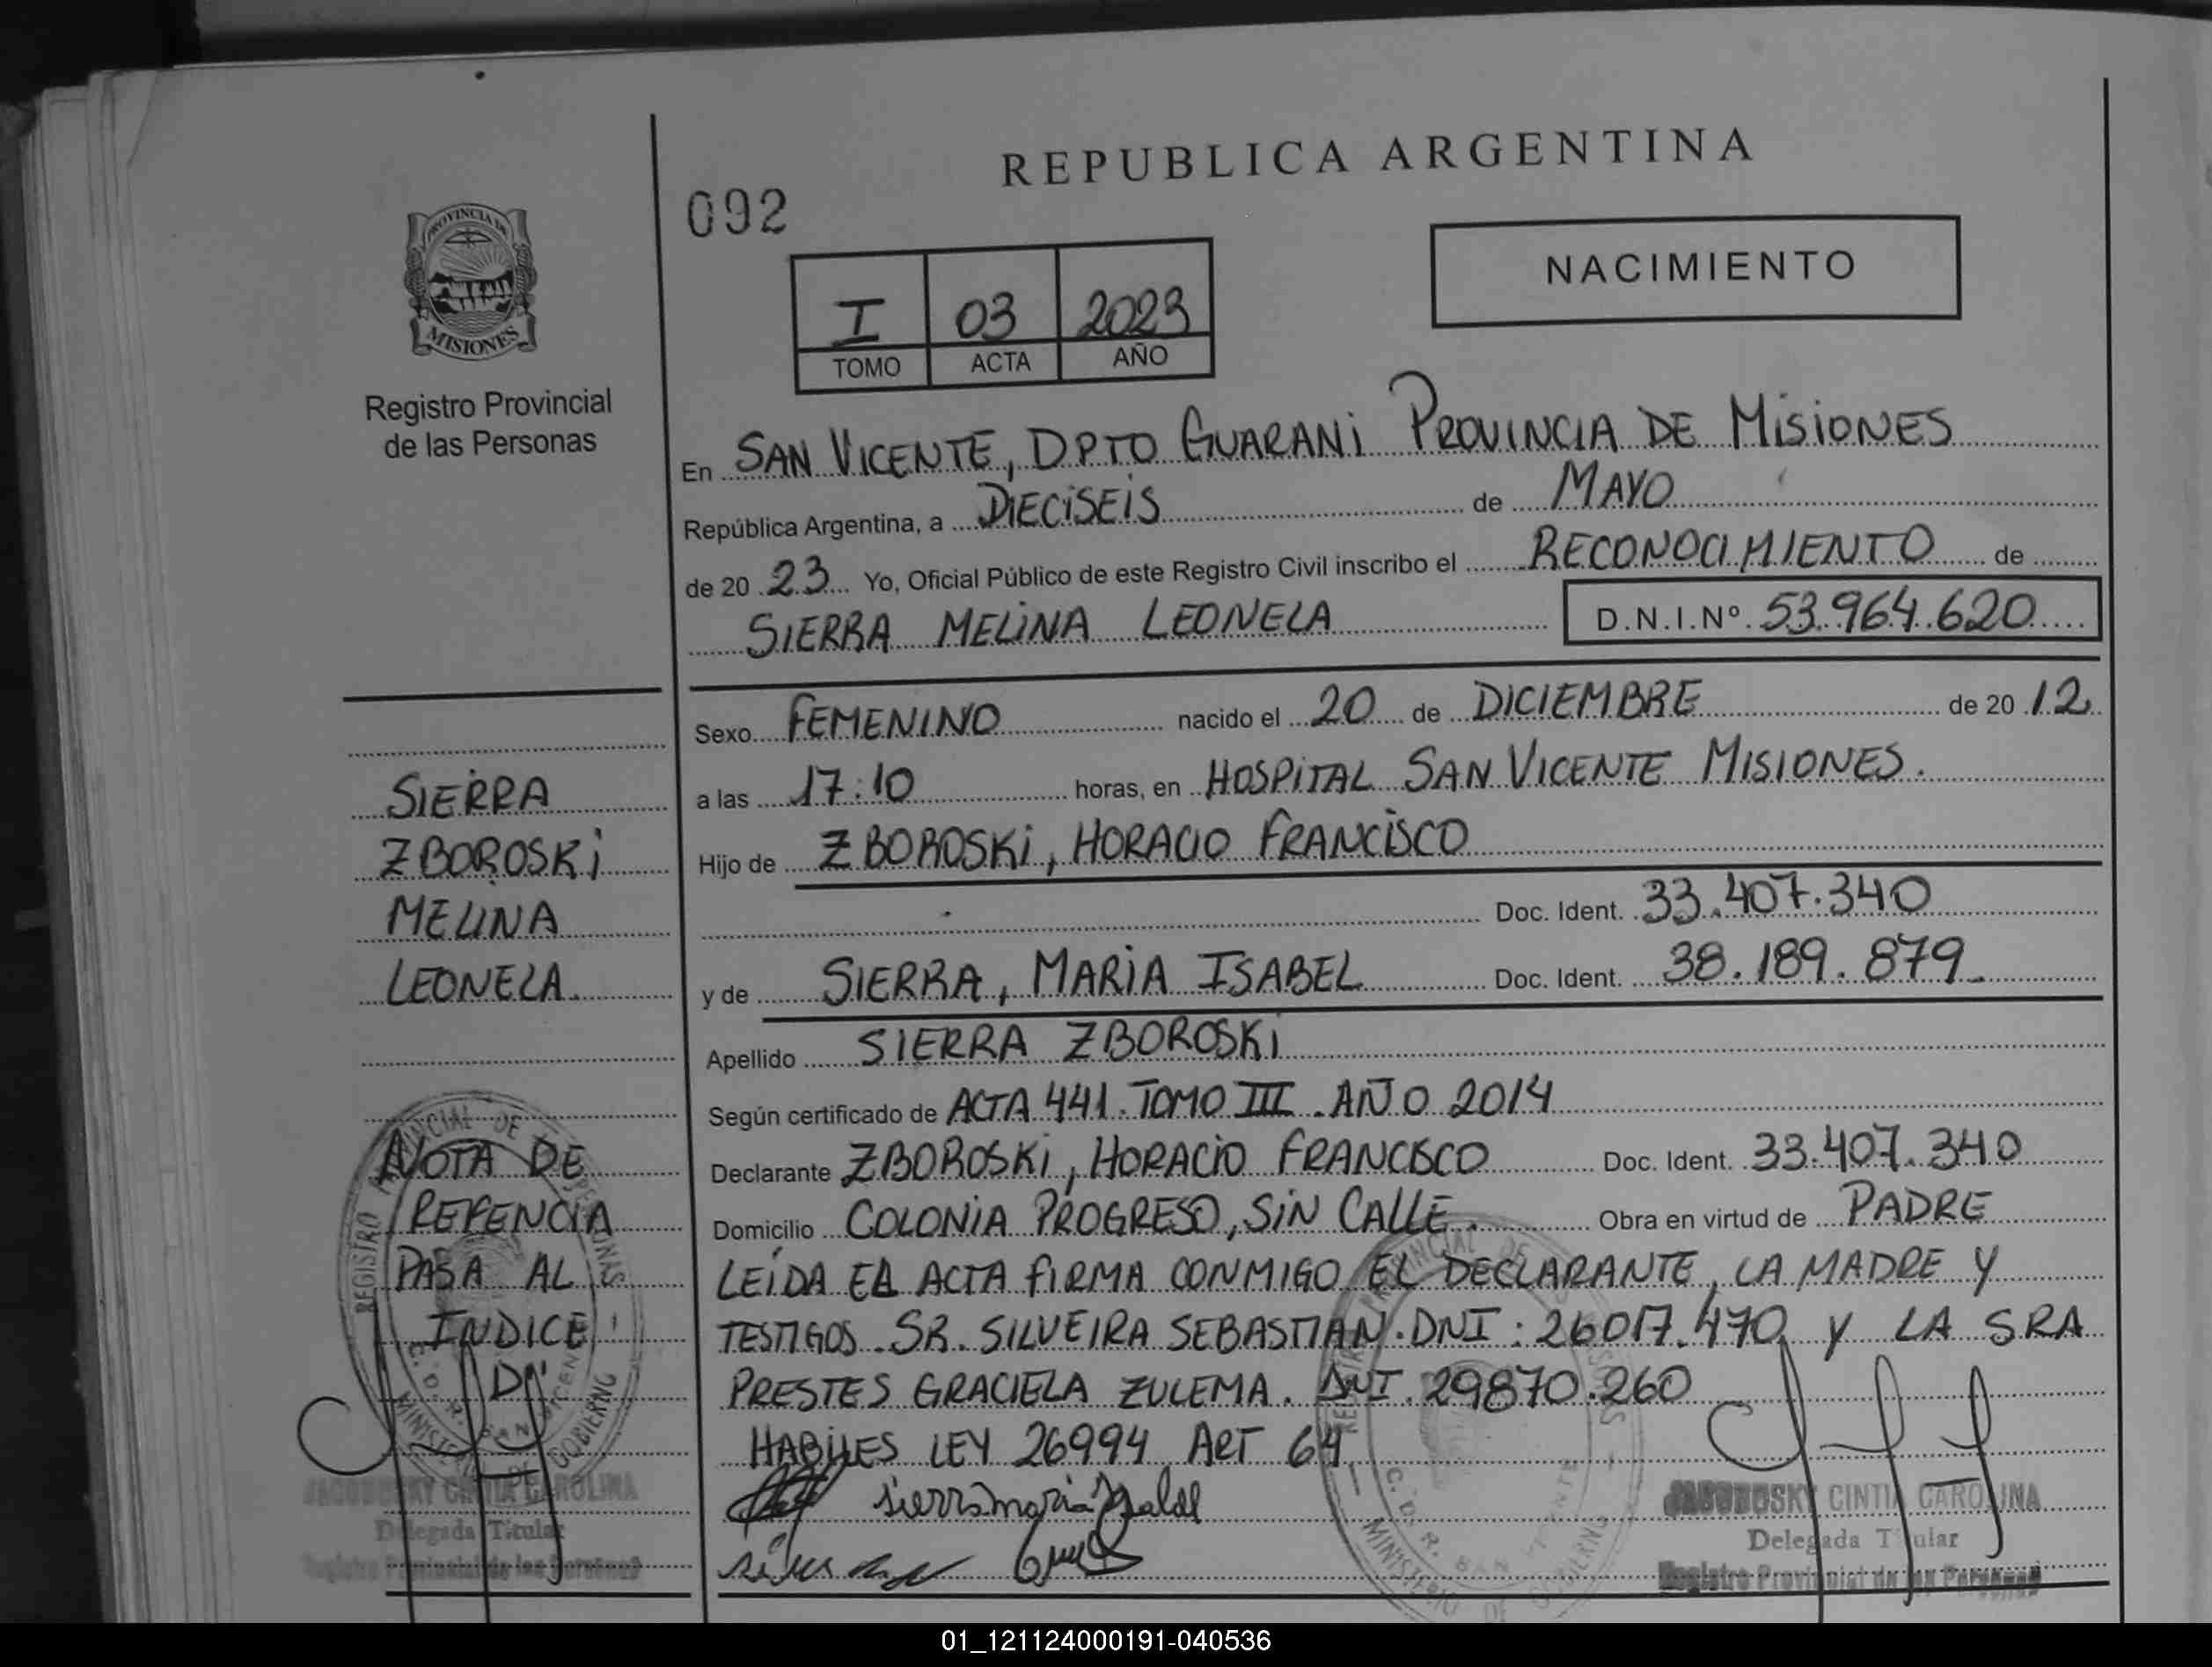 REPUBLICA ARGENTINA
092
NACIMIENTO
PROVINCIA DE
MISIONES
I 03 2023
TOMO ACTA AÑO
Registro Provincial
de las Personas
En SAN VICENTE, DPTO GUARANI PROVINCIA DE MISIONES
República Argentina, a DIECISEIS de MAYO
de 20 23 Yo, Oficial Público de este Registro Civil inscribo el RECONOCIMIENTO de
SIERRA MELINA LEONELA D.N.I.Nº 53.964.620
Sexo FEMENINO nacido el 20 de DICIEMBRE de 20 12
a las 17:10 horas, en HOSPITAL SAN VICENTE MISIONES.
Hijo de ZBOROSKI, HORACIO FRANCISCO
Doc. Ident. 33.407.340
y de SIERRA, MARIA ISABEL Doc. Ident. 38.189.879
Apellido SIERRA ZBOROSKI
Según certificado de ACTA 441. TOMO III. AÑO 2014
Declarante ZBOROSKI, HORACIO FRANCISCO Doc. Ident. 33.407.340
Domicilio COLONIA PROGRESO, SIN CALLE. Obra en virtud de PADRE
LEIDA EL ACTA FIRMA CONMIGO EL DECLARANTE, LA MADRE Y
TESTIGOS. SR. SILVEIRA SEBASTIAN. DNI: 26017.470 Y LA SRA
PRESTES GRACIELA ZULEMA. DNI. 29870.260
HABILES LEY 26994 ART 64
Sierra maria Isabel
JACOBOSKY CINTIA CAROLINA
Delegada Titular
Registro Provincial de las Personas
SIERRA
ZBOROSKI
MELINA
LEONELA.
NOTA DE
REFENCIA
PASA AL
INDICE
D
REGISTRO PROVINCIAL DE LAS PERSONAS
C. D. R. SAN VICENTE
MINISTERIO DE GOBIERNO
JACOBOSKY CINTIA CAROLINA
Delegada Titular
Registro Provincial de las Personas
REGISTRO PROVINCIAL DE
C. D. R. SAN VICENTE
MINISTERIO DE GOBIERNO
01_121124000191-040536